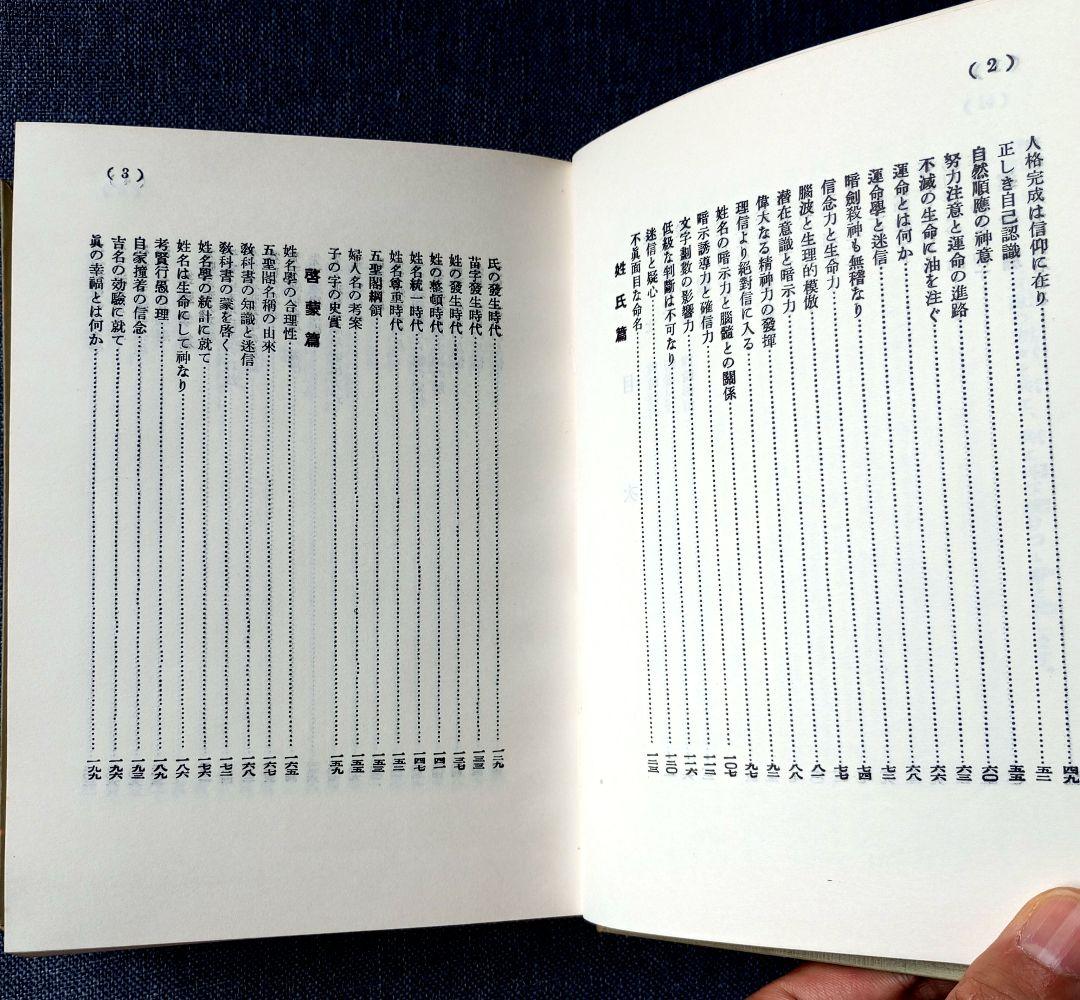 (2)
人格完成は信仰に在り……四九
正しき自己認識……五二
自然順應の神意……五五
努力注意と運命の進路……六〇
不滅の生命に油を注ぐ……六三
運命とは何か……六六
運命學と迷信……六八
暗劍殺神も無稽なり……七二
信念力と生命力……七四
腦波と生理的模倣……七七
潛在意識と暗示力……八一
偉大なる精神力の發揮……八八
理信より絶對信に入る……九二
姓名の暗示力と腦髓との關係……九七
暗示誘導力と確信力……一〇七
文字劃數の影響力……一一二
低級な判斷は不可なり……一一六
迷信と疑心……一二〇
不眞面目な命名……一二三
姓氏篇
(3)
氏の發生時代……一二九
苗字發生時代……一三三
姓の發生時代……一三七
姓の整頓時代……一四一
姓名統一時代……一四七
姓名尊重時代……一五二
五聖閣綱領……一五三
婦人名の考案……一五五
子の字の史實……一五九
啓蒙篇
姓名學の合理性……一六五
五聖閣名稱の由來……一六七
敎科書の知識と迷信……一六八
敎科書の蒙を啓く……一七二
姓名學の統計に就て……一七六
姓名は生命にして神なり……一八六
考賢行愚の理……一八九
自家撞着の信念……一九三
吉名の効驗に就て……一九六
眞の幸福とは何か……一九九